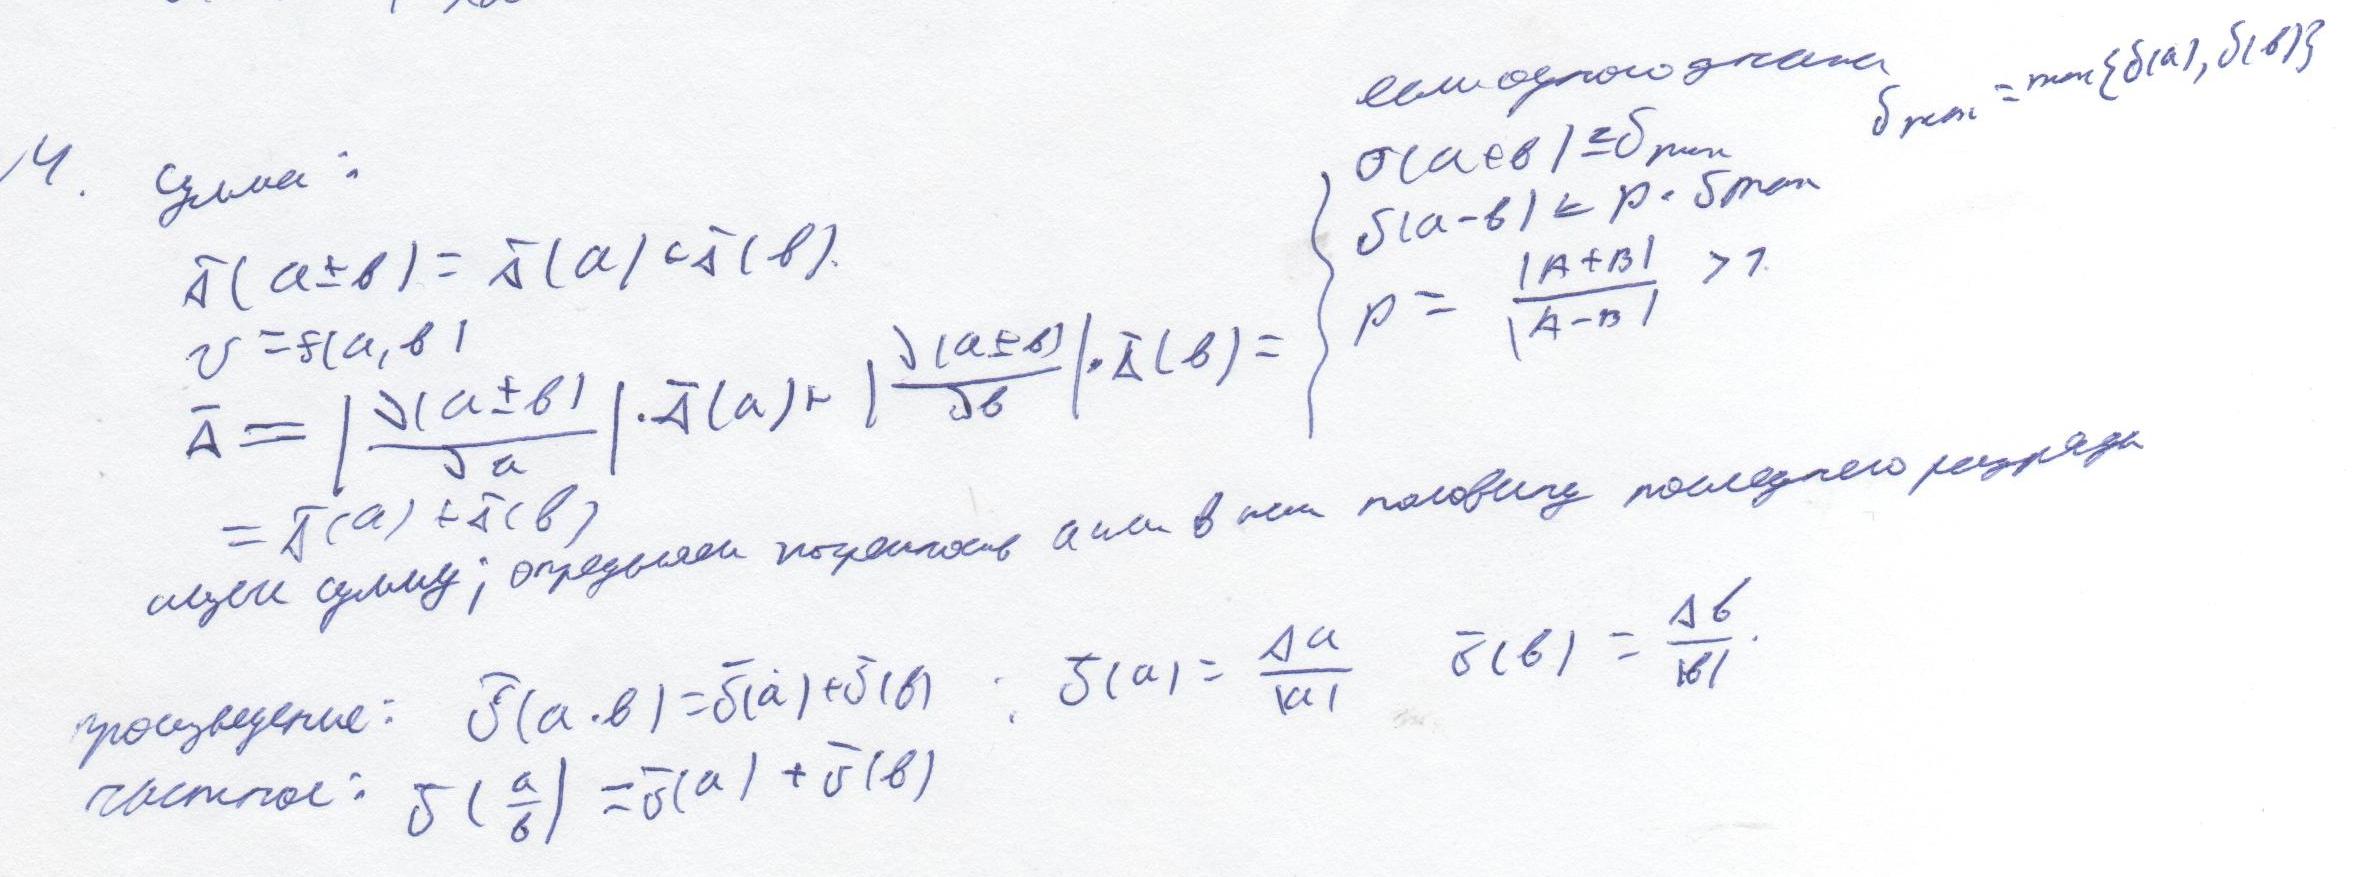 14. Сумма:
Δ̄(a±b) = Δ̄(a) + Δ̄(b).
v = f(a, b)
Δ̄ = |∂(a±b)/∂a| · Δ̄(a) + |∂(a±b)/∂b| · Δ̄(b) =
= Δ̄(a) + Δ̄(b)
если одного знака
δ(a+b) ≤ δmax
δmax = max{δ(a), δ(b)}
δ(a-b) ≤ p · δmax
p = |A+B| / |A-B| > 1.
ищем сумму; определяем погрешность a или b как половину последнего разряда
произведение: δ̄(a·b) = δ̄(a) + δ̄(b) ; δ̄(a) = Δa/|a| δ̄(b) = Δb/|b|.
частное: δ̄(a/b) = δ̄(a) + δ̄(b)